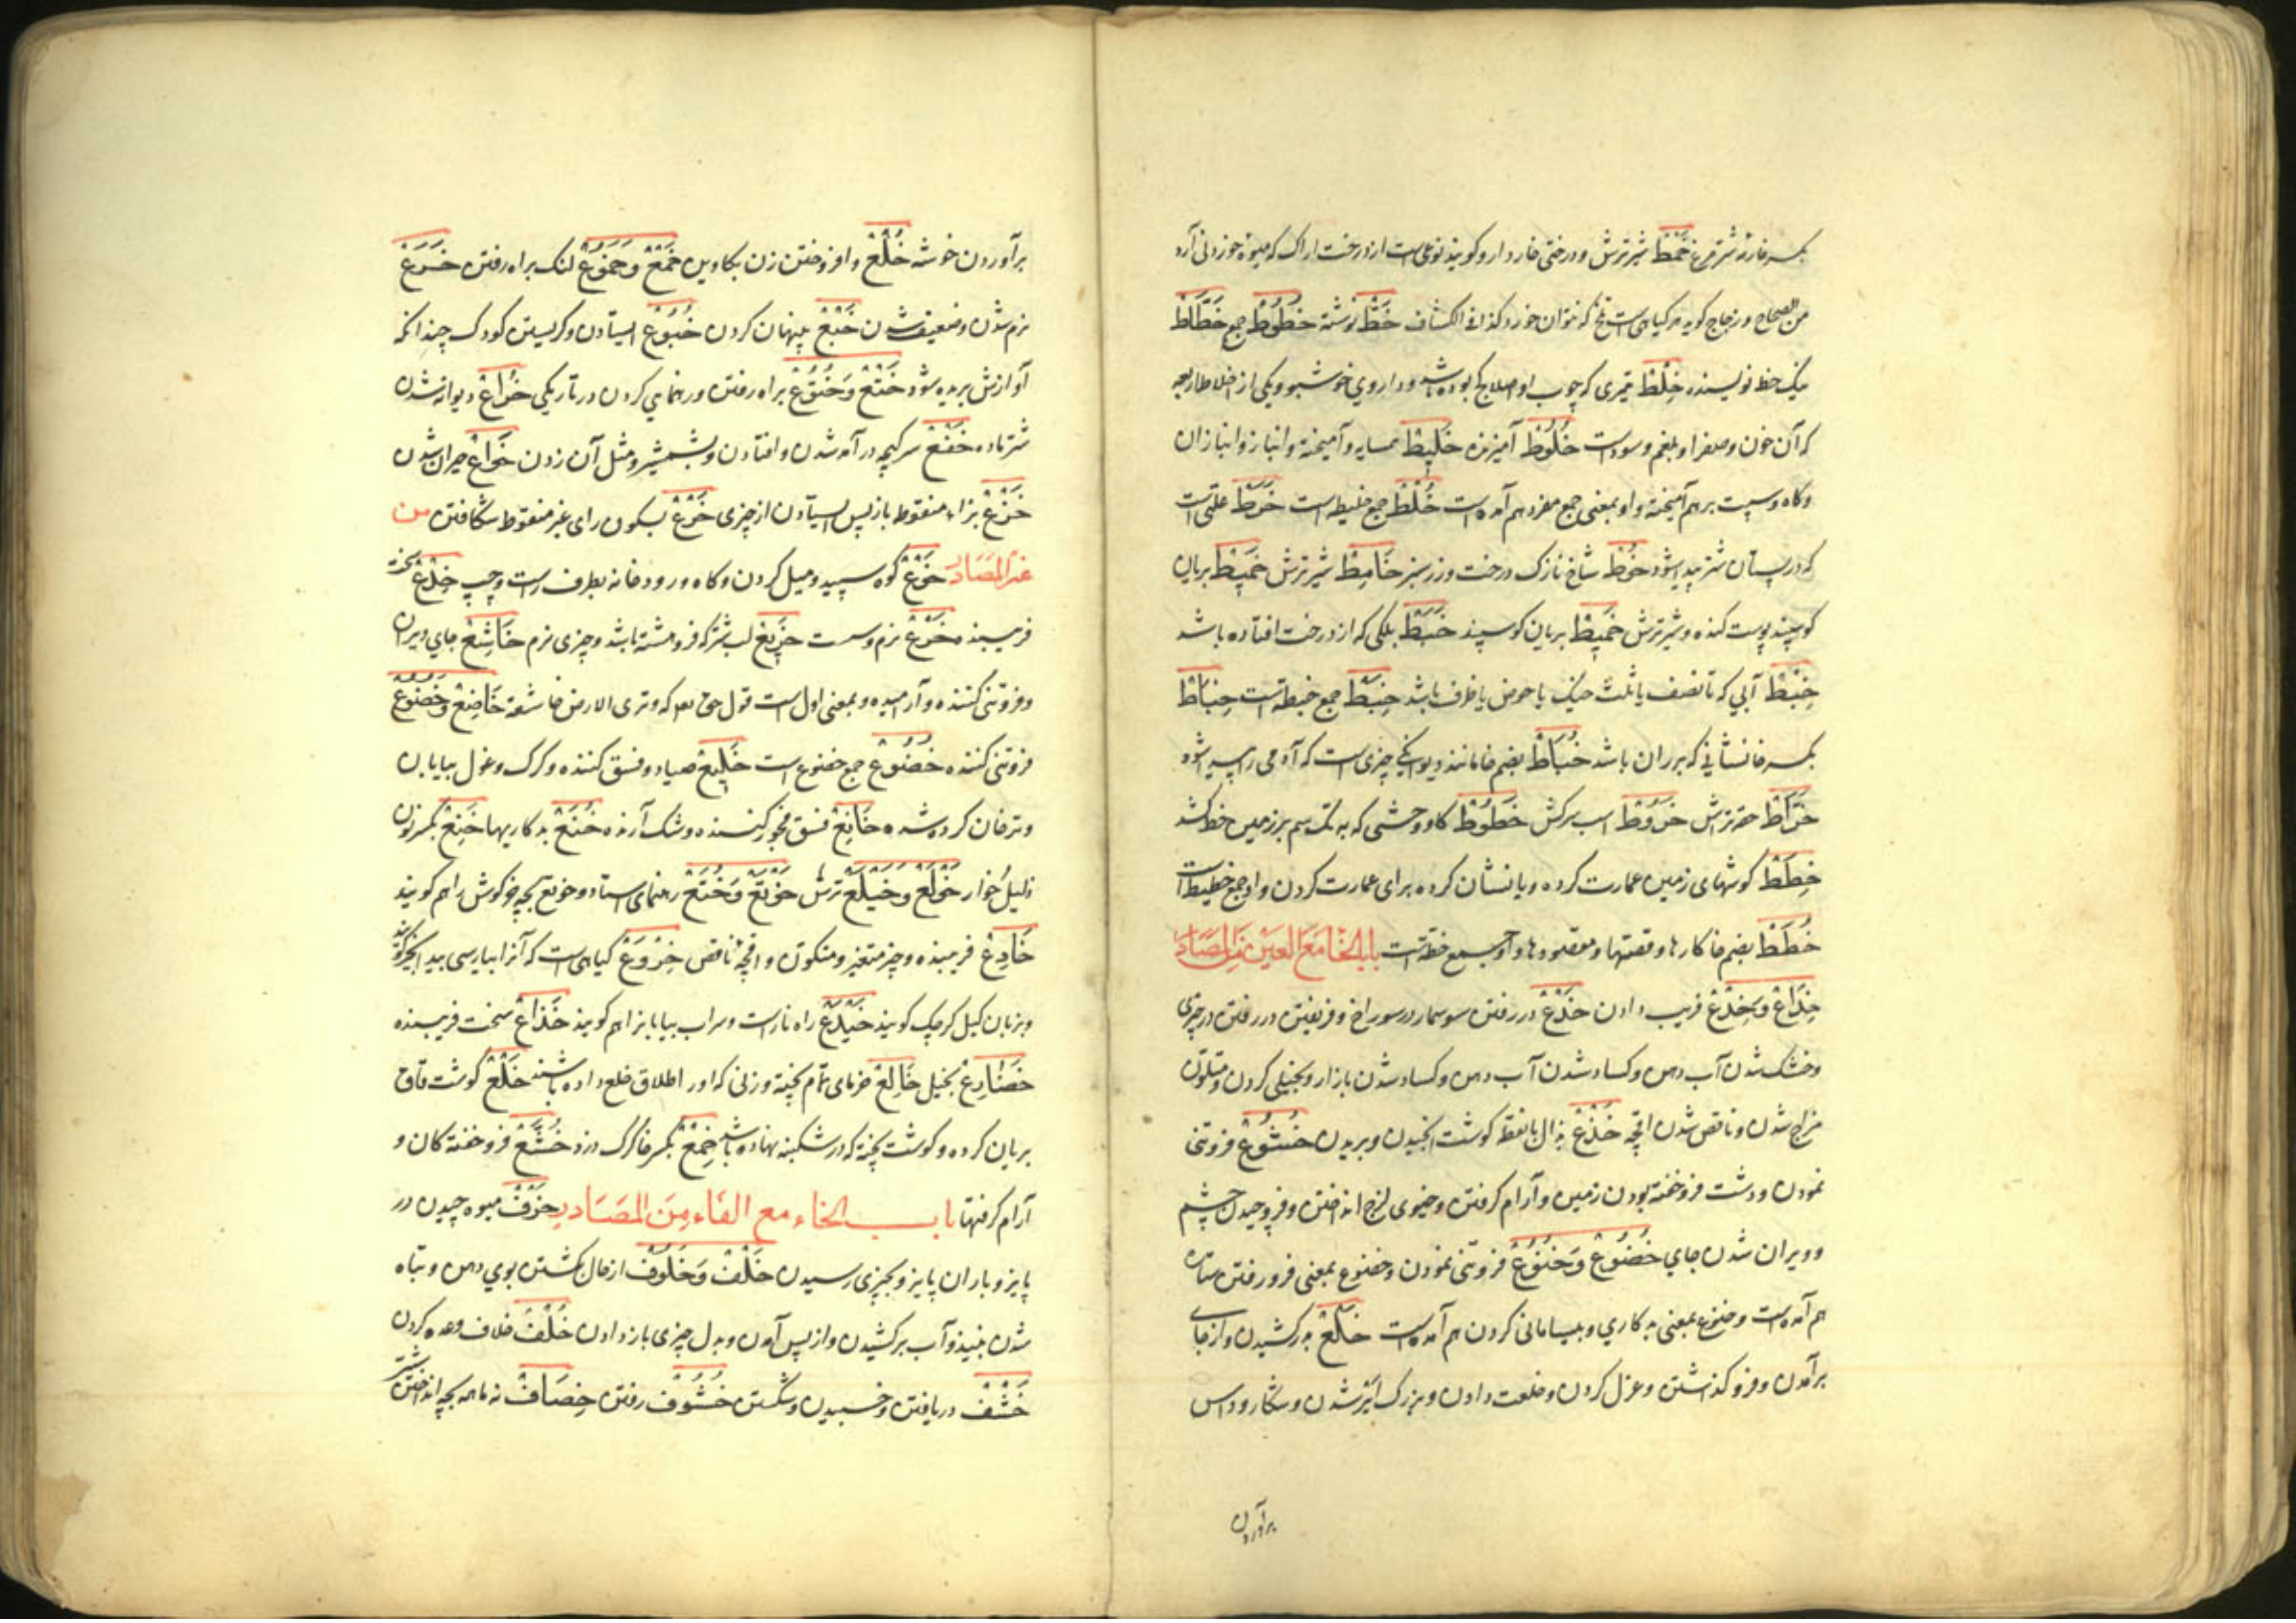 بکسر خا نره شتر مرغ خَمْط شیر ترش و درختی خاردار و کویند نوعی است از درخت اراک که میوه خوردنی آرد
من الصحاح و زجاج کوید هر کیاهی است تلخ که نتوان خورد کذا فی الکشاف خَطّ نوشته خُطُوط جمع خَطَّاط
نیک خط نویسنده خِلْط تیری که چوب او اصلا کج بوده باشد و داروی خوشبو و یکی از اخلاط اربعه
که آن خون و صفرا و بلغم و سوداست خَلُوط آمیزنده خَلِیط همسایه و آمیخته و انباز و انبازان
و کاه و سپست برهم آمیخته و او بمعنی جمع مفرد هم آمده است خُلُط جمع خلیط است خَرَط علتی است
که در پستان شتر پیدا شود خُوط شاخ نازک درخت و رز سبز خَامِط شیر ترش خَمِیط بریان
کوسپند پوست کنده و شیر ترش خَمِیط بریان کوسپند خَبَط بلکی که از درخت افتاده باشد
خِبْط آبی که تا نصف یا ثلث خیک یا حوض یا ظرف باشد خِبَط جمع خبطة است خِبَاط
بکسر خا نشانی که بر ران باشد خُبَاط بضم خا مانند دیوانکی چیزی است که آدمی را پیدا شود
خَرَّاط حقه تراش خَرُوط اسب سرکش خَطُوط کاو وحشی که به تک سم بر زمین خط کشد
خِطَط کوشهای زمین عمارت کرده و یا نشان کرده برای عمارت کردن و او جمع خطیطه است
خُطَط بضم خا کارها و قصتها و مقصودها و او جمع خطة است باب الخا مع العین من المصادر
خِدَاع وَ خِدْع فریب دادن خَدْع در رفتن سوسمار در سوراخ و فریفتن و در رفتن در چیزی
و خشک شدن آب دهن و کساد شدن آب دهن و کساد شدن بازار و بخیلی کردن و متلون
مزاج شدن و ناقص شدن اقچه خَذْع بذال بانقطه کوشت انجیدن و بریدن خُشُوع فروتنی
نمودن و دشت فروخفته بودن زمین و آرام کرفتن و خیوی لزج انداختن و فروچیدن چشم
و ویران شدن جای خُضُوع وَ خُنُوع فروتنی نمودن و خضوع بمعنی فرو رفتن ستاره
هم آمده است و خنوع بمعنی بد کاری و بیسامانی کردن هم آمده است خَلْع بدر کشیدن و از جای
برآمدن و فرو کذاشتن و عزل کردن و خلعت دادن و بزرک شدن و
برآوردن
برآوردن خوشه خُلْع وا فروختن زن بکاوین خَمْع وَ خُمُوع لنک براه رفتن خَرَع
نرم شدن و ضعیف شدن خَبْع پنهان کردن خُبُوع ایستادن و کریستن کودک چندانکه
آوازش بریده شود خَتْع وَ خُتُوع براه رفتن و رهنمایی کردن در تاریکی خُرَاع دیوانه شدن
شتر ماده خَفْع سرکیچه در آمد شدن و افتادن و بشمشیر و مثل آن زدن خَوَاع حیران شدن
خَزْع بزاء منقوط بازپس ایستادن از چیزی خَرْع بسکون رای غیر منقوط شکافتن من
غیر المصادر خَوْع کوه سپید و میل کردن و کاه و رودخانه بطرف راست و چپ خِدْع سخت
فریبنده خَرْع نرم و سست خَرِیع لب شتر که فروهشته باشد و چیزی نرم خَاشِع جای ویران
و فروتنی کننده و آرامیده و بمعنی اول است قول حق تعالی که وتری الارض خاشعة خَاضِع وَ خَضُوع
فروتنی کننده خُضُوع جمع خضوع است خَلِیع صیاد و فسق کننده و کرک و غول بیابان
و ترخان کرده شده خَانِع فسق و فجور کننده و شک آرنده خُنَع بدکاریها خَنِع بکسر نون
ذلیل خوار خَوْلَع وَ خَیْلَع ترش خَوْتَع وَ خُتَع رهنمای استاد و خوتع بچه خرکوش را هم کویند
خَادِع فریبنده و چیز متغیر و متکون و اقچه ناقص خِرْوَع کیاهی است که آنرا بپارسی بید انجیر کویند
و بزبان کیل کرچک کویند خَیْدَع راه ناراست و سراب بیابانرا هم کویند خَدَّاع سخت فریبنده
خُضَارِع بخیل خَالِع خرمای تمام پخته و زنی که او را طلاق خلع داده باشند خَلْع کوشت قاق
بریان کرده و کوشت پخته که در شکنبه نهاده باشد خِمْع بکسر خا کرک دزد خُشَّع فروخفته کان و
آرام کرفتها باب الخاء مع الفاء من المصادر خَرْف میوه چیدن در
پاییز و باران پاییز و بچیزی رسیدن خَلْف وَ خُلُوف از حال بکشتن بوی دهن و تباه
شدن نبیذ و آب برکشیدن و از پس آمدن و بدل چیزی باز دادن خُلْف خلاف وعده کردن
خَشْف دریافتن و خسبیدن و شکستن خُشُوف رفتن خِصَاف نه ماهه بچه انداختن شتر